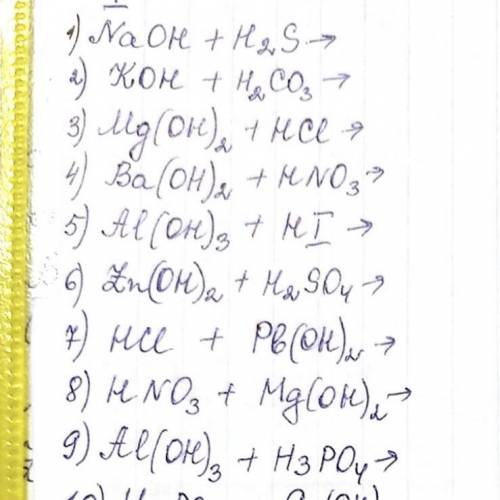 1) NaOH + H₂S →
2) KOH + H₂CO₃ →
3) Mg(OH)₂ + HCl →
4) Ba(OH)₂ + HNO₃ →
5) Al(OH)₃ + HI →
6) Zn(OH)₂ + H₂SO₄ →
7) HCl + Pb(OH)₂ →
8) HNO₃ + Mg(OH)₂ →
9) Al(OH)₃ + H₃PO₄ →